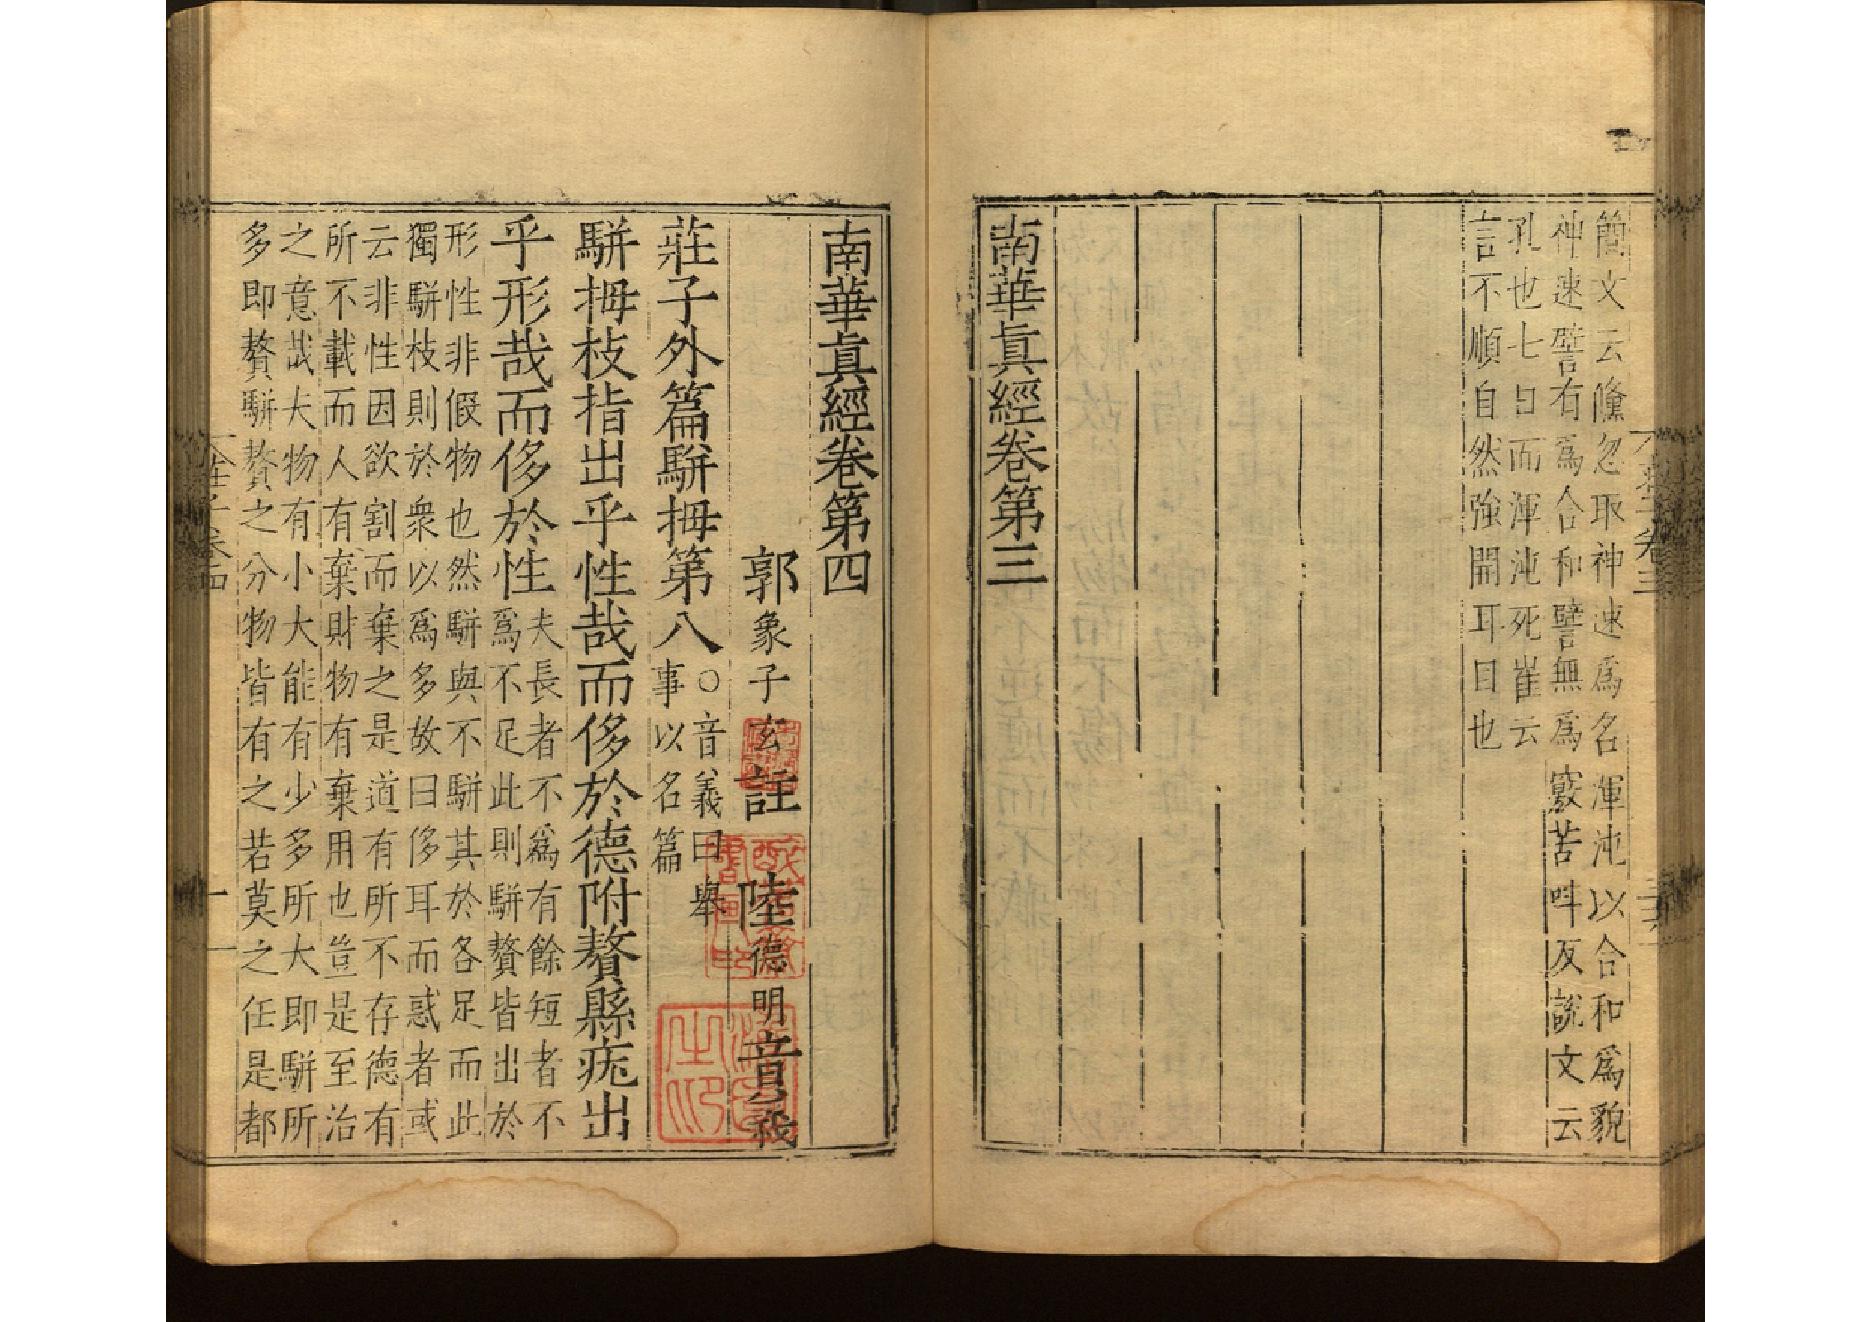 簡文云儵忽取神速爲名渾沌以合和爲貌
神速譬有爲合和譬無爲 竅苦呌反說文云
孔也七日而渾沌死崔云
言不順自然強開耳目也
南華眞經卷第三
南華眞經卷第四
郭象子玄註 陸德明音義
莊子外篇騈拇第八
○音義曰舉
事以名篇
騈拇枝指出乎性哉而侈於德附贅縣疣出
乎形哉而侈於性
夫長者不爲有餘短者不
爲不足此則騈贅皆出於
形性非假物也然騈與不騈其於各足而此
獨騈枝則於衆以爲多故曰侈耳而惑者或
云非性因欲割而棄之是道有所不存德有
所不載而人有棄財物有棄用也豈是至治
之意哉夫物有小大能有少多所大即騈所
多即贅騈贅之分物皆有之若莫之任是都